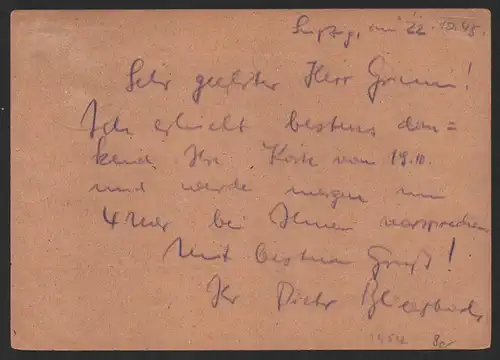 Leipzig, am 22.10.45.
Sehr geehrter Herr Grimm!
Ich erhielt bestens dan=
kend Ihre Karte vom 19.10.
und werde morgen um
4 Uhr bei Ihnen vorsprechen
Mit bestem Gruß!
Ihr Dieter